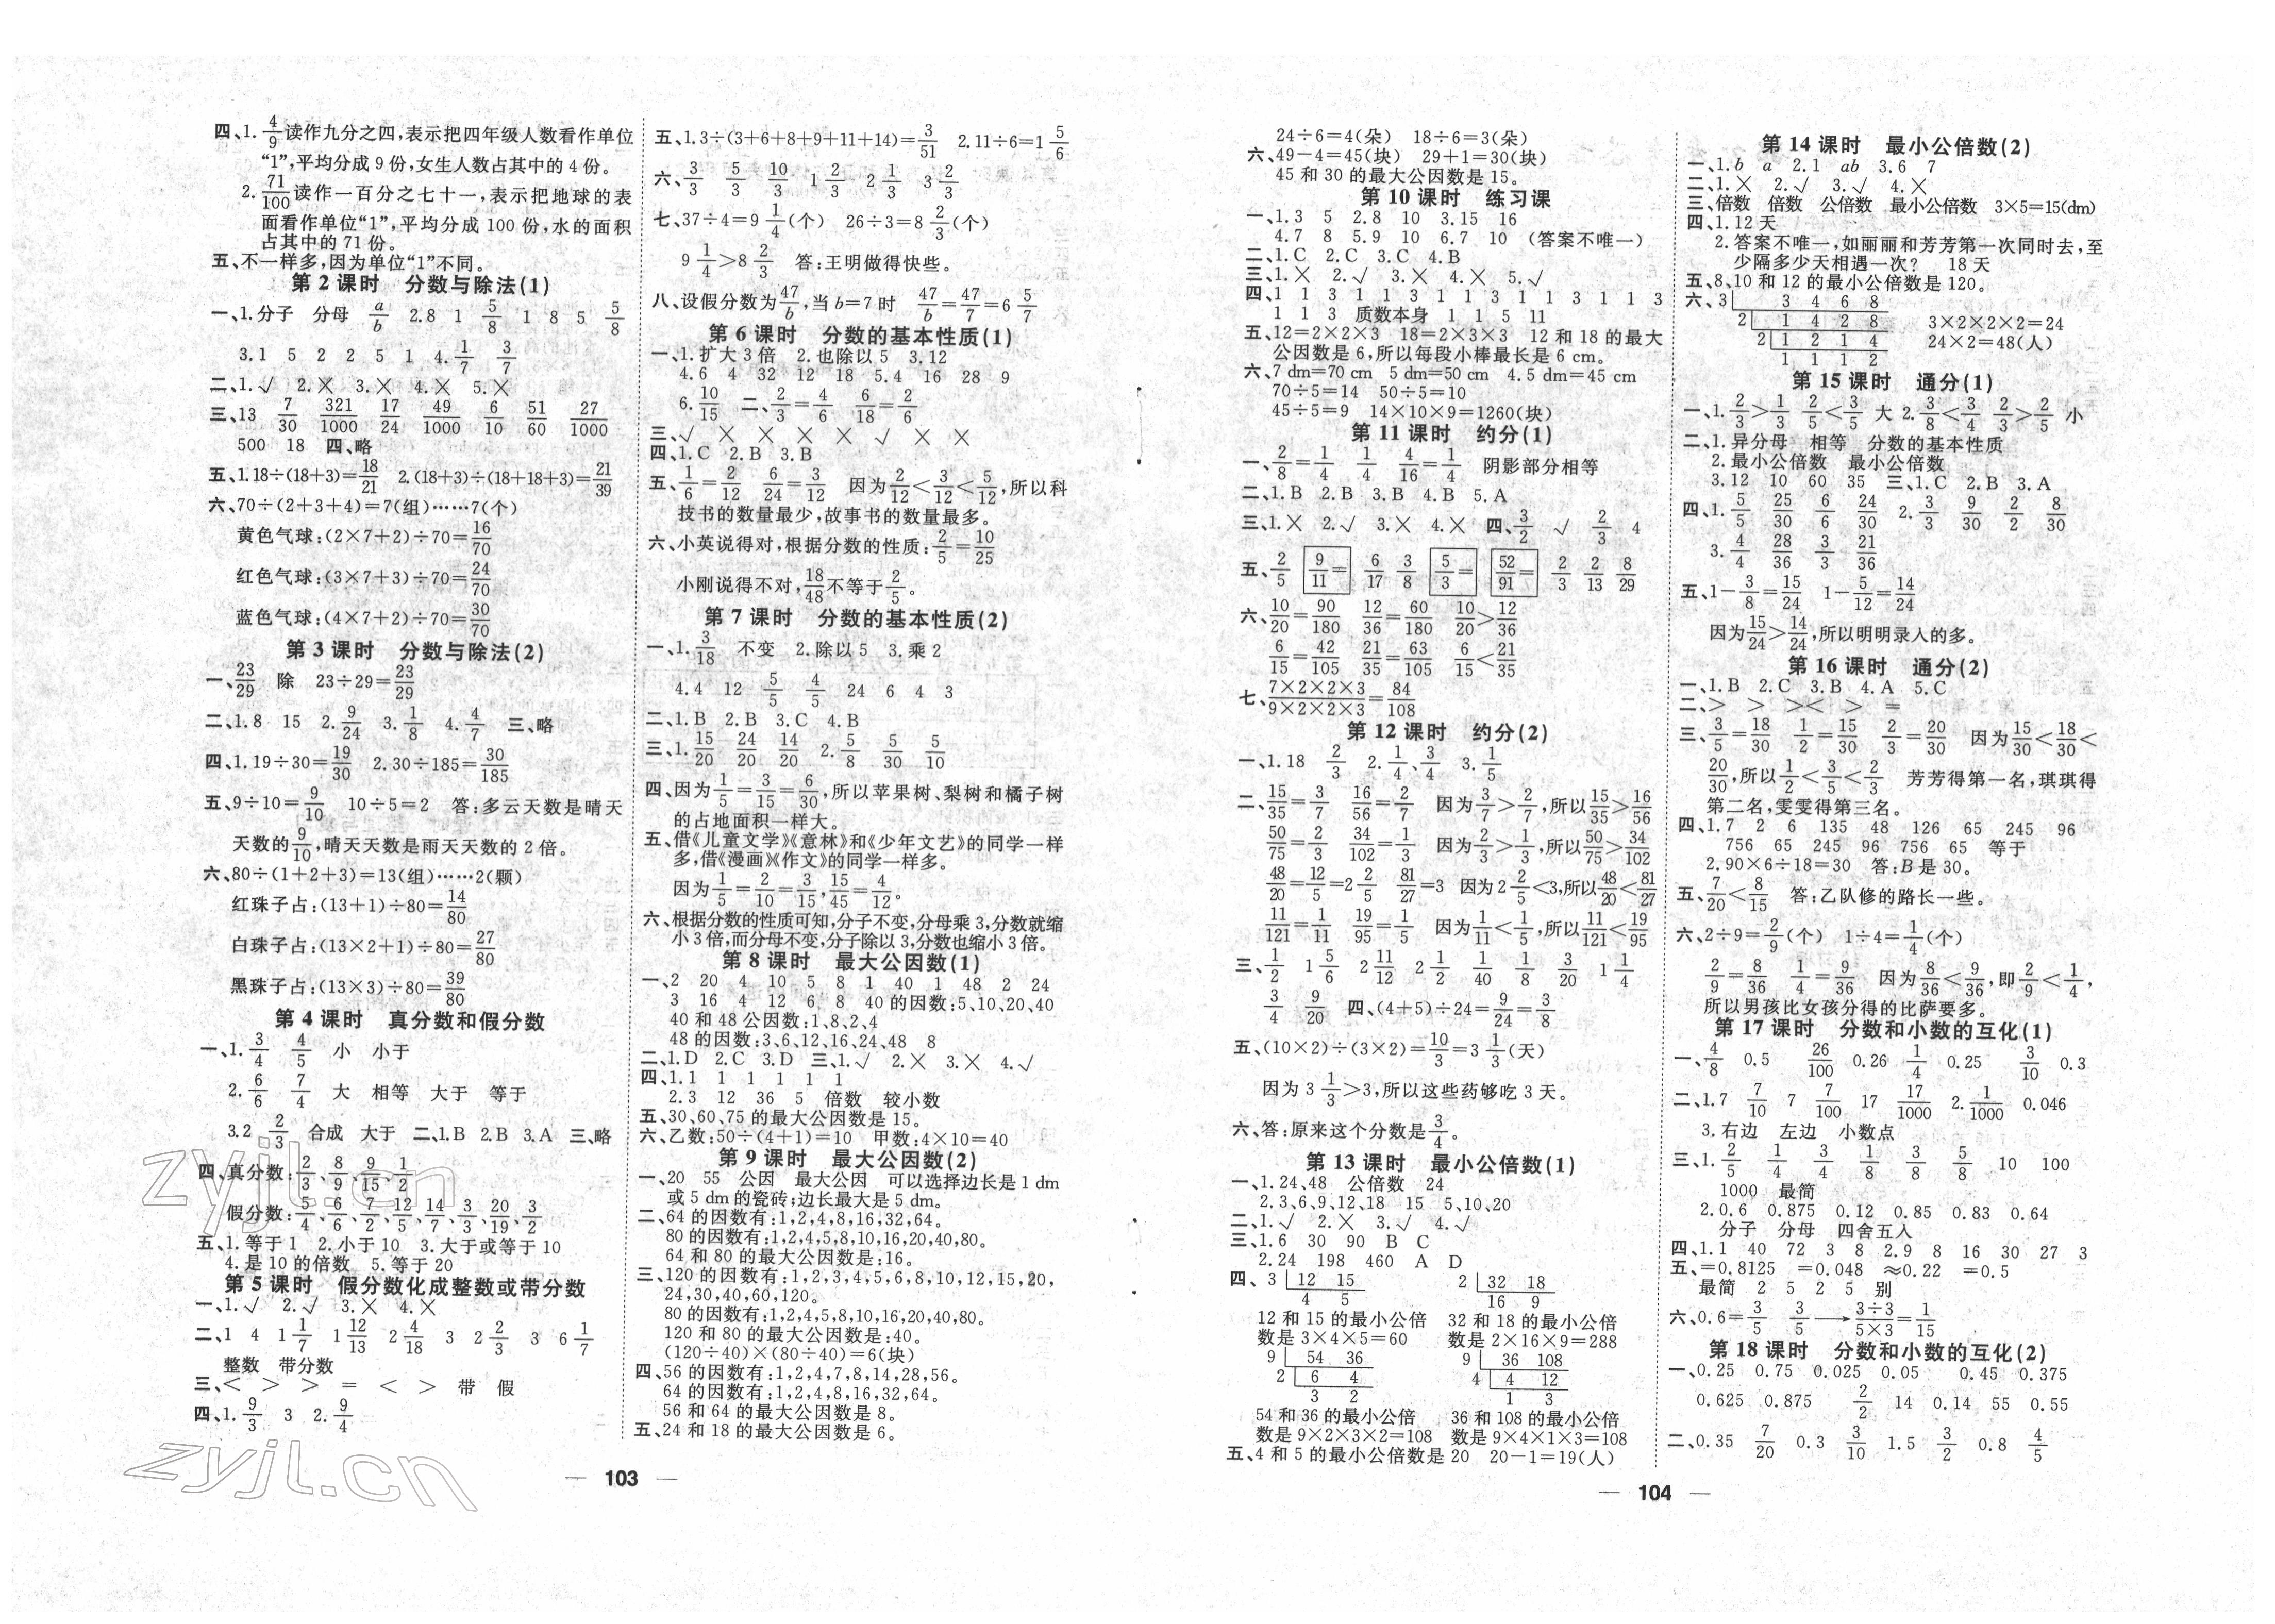 四、1. 4/9读作九分之四,表示把四年级人数看作单位
“1”,平均分成 9 份,女生人数占其中的 4 份。
2. 71/100读作一百分之七十一,表示把地球的表
面看作单位“1”,平均分成 100 份,水的面积
占其中的 71 份。
五、不一样多,因为单位“1”不同。
第 2 课时 分数与除法(1)
一、1.分子 分母 a/b 2.8 1 5/8 1 8 5 5/8
3.1 5 2 2 5 1 4. 1/7 3/7
二、1.√ 2.× 3.× 4.× 5.×
三、13 7/30 321/1000 17/24 49/1000 6/10 51/60 27/1000
500 18 四、略
五、1.18÷(18+3)=18/21 2.(18+3)÷(18+18+3)=21/39
六、70÷(2+3+4)=7(组)……7(个)
黄色气球:(2×7+2)÷70=16/70
红色气球:(3×7+3)÷70=24/70
蓝色气球:(4×7+2)÷70=30/70
第 3 课时 分数与除法(2)
一、23/29 除 23÷29=23/29
二、1.8 15 2. 9/24 3. 1/8 4. 4/7 三、略
四、1.19÷30=19/30 2.30÷185=30/185
五、9÷10=9/10 10÷5=2 答:多云天数是晴天
天数的9/10,晴天天数是雨天天数的 2 倍。
六、80÷(1+2+3)=13(组)……2(颗)
红珠子占:(13+1)÷80=14/80
白珠子占:(13×2+1)÷80=27/80
黑珠子占:(13×3)÷80=39/80
第 4 课时 真分数和假分数
一、1. 3/4 4/5 小 小于
2. 6/6 7/4 大 相等 大于 等于
3.2 2/3 合成 大于 二、1.B 2.B 3.A 三、略
四、真分数:2/3、8/9、9/15、1/2
假分数:5/4、6/6、7/2、12/5、14/7、3/3、20/19、3/2
五、1.等于 1 2.小于 10 3.大于或等于 10
4.是 10 的倍数 5.等于 20
第 5 课时 假分数化成整数或带分数
一、1.√ 2.√ 3.× 4.×
二、1 4 1 1/7 1 12/13 2 4/18 3 2 2/3 3 6 1/7
整数 带分数
三、< > > = < > 带 假
四、1. 9/3 3 2. 9/4
五、1.3÷(3+6+8+9+11+14)=3/51 2.11÷6=1 5/6
六、3/3 5/3 10/3 1 2/3 2 1/3 3 2/3
七、37÷4=9 1/4(个) 26÷3=8 2/3(个)
9 1/4>8 2/3 答:王明做得快些。
八、设假分数为47/b,当 b=7 时 47/b=47/7=6 5/7
第 6 课时 分数的基本性质(1)
一、1.扩大 3 倍 2.也除以 5 3.12
4.6 4 32 12 18 5.4 16 28 9
6. 10/15 二、2/3=4/6 6/18=2/6
三、√ × × × × √ × ×
四、1.C 2.B 3.B
五、1/6=2/12 6/24=3/12 因为2/12<3/12<5/12,所以科
技书的数量最少,故事书的数量最多。
六、小英说得对,根据分数的性质:2/5=10/25
小刚说得不对,18/48不等于2/5。
第 7 课时 分数的基本性质(2)
一、1. 3/18 不变 2.除以 5 3.乘 2
4.4 12 5/5 4/5 24 6 4 3
二、1.B 2.B 3.C 4.B
三、1. 15/20 24/20 14/20 2. 5/8 5/30 5/10
四、因为1/5=3/15=6/30,所以苹果树、梨树和橘子树
的占地面积一样大。
五、借《儿童文学》《意林》和《少年文艺》的同学一样
多,借《漫画》《作文》的同学一样多。
因为1/5=2/10=3/15,15/45=4/12。
六、根据分数的性质可知,分子不变,分母乘 3,分数就缩
小 3 倍,而分母不变,分子除以 3,分数也缩小 3 倍。
第 8 课时 最大公因数(1)
一、2 20 4 10 5 8 1 40 1 48 2 24
3 16 4 12 6 8 40 的因数:5、10、20、40
40 和 48 公因数:1、8、2、4
48 的因数:3、6、12、16、24、48 8
二、1.D 2.C 3.D 三、1.√ 2.× 3.× 4.√
四、1.1 1 1 1 1 1
2.3 12 36 5 倍数 较小数
五、30、60、75 的最大公因数是 15。
六、乙数:50÷(4+1)=10 甲数:4×10=40
第 9 课时 最大公因数(2)
一、20 55 公因 最大公因 可以选择边长是 1 dm
或 5 dm 的瓷砖;边长最大是 5 dm。
二、64 的因数有:1,2,4,8,16,32,64。
80 的因数有:1,2,4,5,8,10,16,20,40,80。
64 和 80 的最大公因数是:16。
三、120 的因数有:1,2,3,4,5,6,8,10,12,15,20,
24,30,40,60,120。
80 的因数有:1,2,4,5,8,10,16,20,40,80。
120 和 80 的最大公因数是:40。
(120÷40)×(80÷40)=6(块)
四、56 的因数有:1,2,4,7,8,14,28,56。
64 的因数有:1,2,4,8,16,32,64。
56 和 64 的最大公因数是 8。
五、24 和 18 的最大公因数是 6。
— 103 —
24÷6=4(朵) 18÷6=3(朵)
六、49-4=45(块) 29+1=30(块)
45 和 30 的最大公因数是 15。
第 10 课时 练习课
一、1.3 5 2.8 10 3.15 16
4.7 8 5.9 10 6.7 10 (答案不唯一)
二、1.C 2.C 3.C 4.B
三、1.× 2.√ 3.× 4.× 5.√
四、1 1 3 1 1 3 1 1 3 1 1 3 1 1 3
1 1 3 质数本身 1 1 5 11
五、12=2×2×3 18=2×3×3 12 和 18 的最大
公因数是 6,所以每段小棒最长是 6 cm。
六、7 dm=70 cm 5 dm=50 cm 4.5 dm=45 cm
70÷5=14 50÷5=10
45÷5=9 14×10×9=1260(块)
第 11 课时 约分(1)
一、2/8=1/4 1/4 4/16=1/4 阴影部分相等
二、1.B 2.B 3.B 4.B 5.A
三、1.× 2.√ 3.× 4.× 四、3/2 √ 2/3 4
五、2/5 9/11= 6/17 3/8 5/3= 52/91= 2/3 2/13 8/29
六、10/20=90/180 12/36=60/180 10/20>12/36
6/15=42/105 21/35=63/105 6/15<21/35
七、7×2×2×3/9×2×2×3=84/108
第 12 课时 约分(2)
一、1.18 2/3 2. 1/4、3/4 3. 1/5
二、15/35=3/7 16/56=2/7 因为3/7>2/7,所以15/35>16/56
50/75=2/3 34/102=1/3 因为2/3>1/3,所以50/75>34/102
48/20=12/5=2 2/5 81/27=3 因为2 2/5<3,所以48/20<81/27
11/121=1/11 19/95=1/5 因为1/11<1/5,所以11/121<19/95
三、1/2 1 5/6 2 11/12 2 1/2 1/40 1/8 3/20 1 1/4
3/4 9/20 四、(4+5)÷24=9/24=3/8
五、(10×2)÷(3×2)=10/3=3 1/3(天)
因为 3 1/3>3,所以这些药够吃 3 天。
六、答:原来这个分数是3/4。
第 13 课时 最小公倍数(1)
一、1.24、48 公倍数 24
2.3、6、9、12、18 15 5、10、20
二、1.√ 2.× 3.√ 4.√
三、1.6 30 90 B C
2.24 198 460 A D
四、 3 12 15 2 32 18
4 5 16 9
12 和 15 的最小公倍 32 和 18 的最小公倍
数是 3×4×5=60 数是 2×16×9=288
9 54 36 9 36 108
2 6 4 4 4 12
3 2 1 3
54 和 36 的最小公倍 36 和 108 的最小公倍
数是 9×2×3×2=108 数是 9×4×1×3=108
五、4 和 5 的最小公倍数是 20 20-1=19(人)
第 14 课时 最小公倍数(2)
一、1.b a 2.1 ab 3.6 7
二、1.× 2.√ 3.√ 4.×
三、倍数 倍数 公倍数 最小公倍数 3×5=15(dm)
四、1.12 天
2.答案不唯一,如丽丽和芳芳第一次同时去,至
少隔多少天相遇一次? 18 天
五、8、10 和 12 的最小公倍数是 120。
六、3 3 4 6 8
2 1 4 2 8 3×2×2×2=24
2 1 2 1 4 24×2=48(人)
1 1 1 2
第 15 课时 通分(1)
一、1. 2/3>1/3 2/5<3/5 大 2. 3/8<3/4 2/3>2/5 小
二、1.异分母 相等 分数的基本性质
2.最小公倍数 最小公倍数
3.12 10 60 35 三、1.C 2.B 3.A
四、1. 5/5 25/30 6/6 24/30 2. 3/3 9/30 2/2 8/30
3. 4/4 28/36 3/3 21/36
五、1-3/8=15/24 1-5/12=14/24
因为15/24>14/24,所以明明录入的多。
第 16 课时 通分(2)
一、1.B 2.C 3.B 4.A 5.C
二、> > >< > =
三、3/5=18/30 1/2=15/30 2/3=20/30 因为15/30<18/30<
20/30,所以1/2<3/5<2/3 芳芳得第一名,琪琪得
第二名,雯雯得第三名。
四、1.7 2 6 135 48 126 65 245 96
756 65 245 96 756 65 等于
2.90×6÷18=30 答:B 是 30。
五、7/20<8/15 答:乙队修的路长一些。
六、2÷9=2/9(个) 1÷4=1/4(个)
2/9=8/36 1/4=9/36 因为8/36<9/36,即2/9<1/4,
所以男孩比女孩分得的比萨要多。
第 17 课时 分数和小数的互化(1)
一、4/8 0.5 26/100 0.26 1/4 0.25 3/10 0.3
二、1.7 7/10 7 7/100 17 17/1000 2. 1/1000 0.046
3.右边 左边 小数点
三、1. 2/5 1/4 3/4 1/8 3/8 5/8 10 100
1000 最简
2.0.6 0.875 0.12 0.85 0.83 0.64
分子 分母 四舍五入
四、1.1 40 72 3 8 2.9 8 16 30 27 3
五、=0.8125 =0.048 ≈0.22 =0.5
最简 2 5 2 5 别
六、0.6=3/5 3/5 → 3÷3/5×3=1/15
第 18 课时 分数和小数的互化(2)
一、0.25 0.75 0.025 0.05 0.45 0.375
0.625 0.875 2/2 14 0.14 55 0.55
二、0.35 7/20 0.3 3/10 1.5 3/2 0.8 4/5
— 104 —
zyjl.cn
zyjl.cn